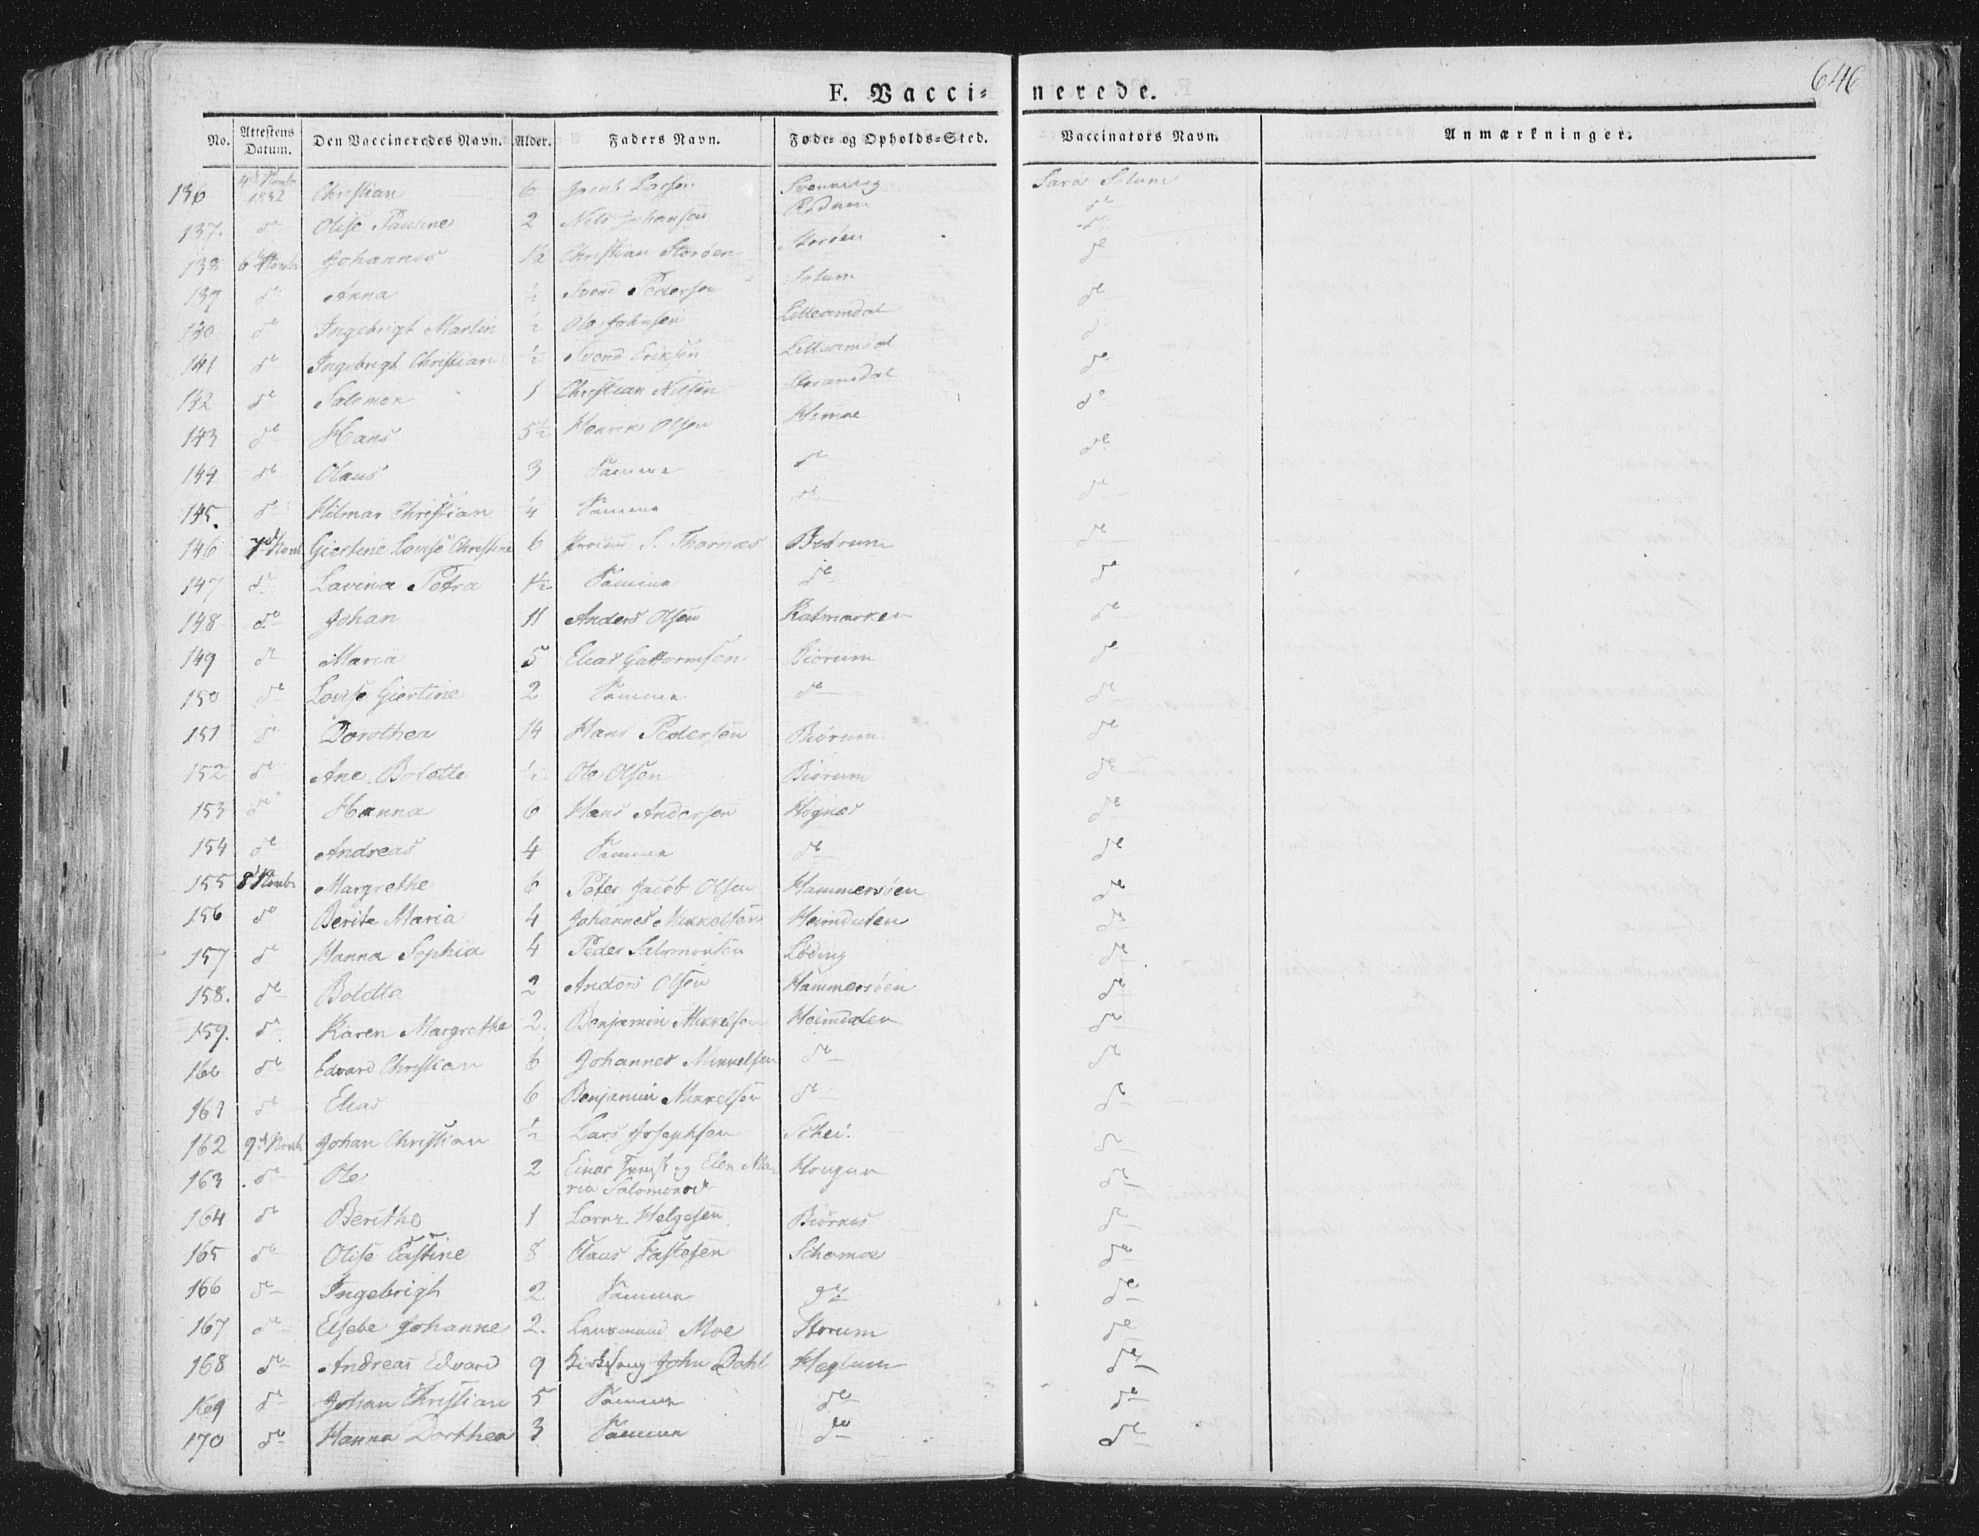 646
F. Vaccinerede.
No. Attestens Datum. Den Vaccineredes Navn. Alder. Faders Navn. Føde- og Opholds-Sted. Vaccinators Navn. Anmærkninger.
136 4de Novbr 1832 Christian 6 Jacob Larsen Svenning Lars Solum
137. do Olise Pauline 2 Nils Johansen do
138 6te Novbr Johannes 1½ Christian Storøen Storøen do
139 do Anna ½ Svend Pedersen Solum do
140 do Ingebrigt Martin ½ Ole Johnsen Lilleamdal do
141 do Ingebrigt Christian ½ Svend Eriksen Lilleamdal do
142 do Salomon 1 Christian Nilsen Storamdal do
143 do Hans 5½ Henrik Olsen Hemoe do
144 do Olaus 3 Samme do do
145. do Hilmar Christian 4 Samme do
146 7de Novb Giertine Lovise Christine 6 S. Thornæs Botrum do
147 do Lavina Petra 1½ Samme do do
148 do Johan 11 Anders Olsen Kalmarken do
149 do Maria 5 Elias Guttormsen Biørum do
150 do Lovise Giertine 2 Samme do do
151 do Dorothea 14 Hans Pedersen Biørum do
152 do Ane Bolette ½ Ole Olsen Biørum do
153 do Hanna 6 Hans Andersen Høgnæs do
154 do Andreas 4 Samme do do
155 8de Novbr Margrethe 6 Peter Jacob Olsen Hammersøen do
156 do Berite Maria 4 Johannes Mikkelsen Heimdalen do
157 do Hanna Sophia 4 Peder Salomonsen Løding do
158. do Bolette 2 Anders Olsen Hammersøen do
159. do Karen Margrethe 2. Benjamin Mikkelsen Heimdalen do
160 do Edvard Christian 6 Johannes Mikkelsen do do
161 do Elias 6 Benjamin Mikkelsen do do
162 9de Novbr Johan Christian ½ Lars Josephsen Schei. do
163 do Ole 2 Einar og Elen Maria Salomonsd Hougen do
164 do Berithe 1 Helgesen Biørnes do
165 do Olise Eastine 8 Claus Fastesen Schomoe do
166 do Ingebrigt 2. Samme do do
167 do Elsebe Johanne 2. Lensmand Moe Storum do
168 do Andreas Edvard 9 Kirkesang John Dahl Heglum do
169 do Johan Christian 5 Samme do do
170 do Hanna Dorthea 3 Samme do do